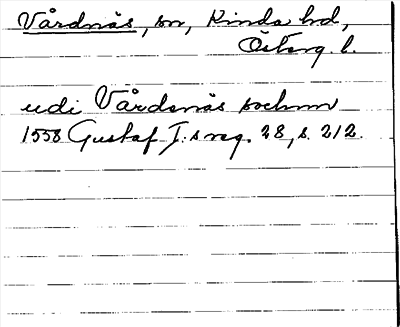 Vårdnäs, sn, Kinda hd,
Österg. l.
udi Vårdsnäs sochnn
1558 Gustaf I:s reg. 28, s. 212.